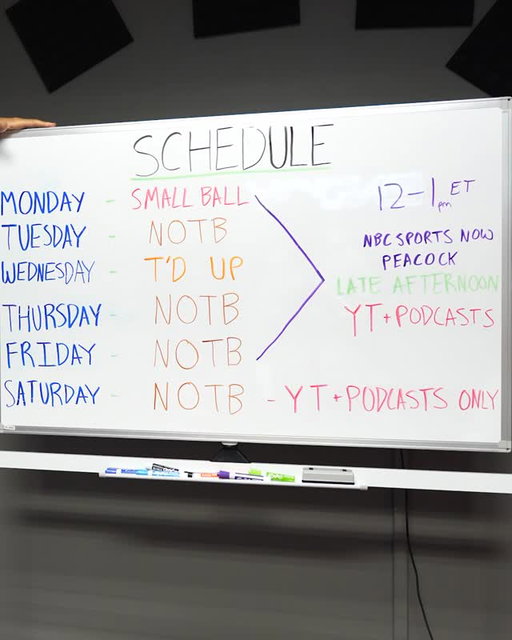 SCHEDULE
MONDAY - SMALL BALL
TUESDAY - NOTB
WEDNESDAY - T'D UP
THURSDAY - NOTB
FRIDAY - NOTB
12-1pm ET
NBC SPORTS NOW
PEACOCK
LATE AFTERNOON
YT+PODCASTS
SATURDAY - NOTB - YT+PODCASTS ONLY